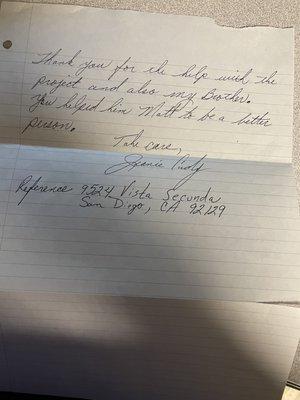 Thank you for the help with the
project and also my Brother.
You helped him Matt to be a better
person.
Take care,
Jeanie
Reference 9524 Vista Secunda
San Diego, CA 92129